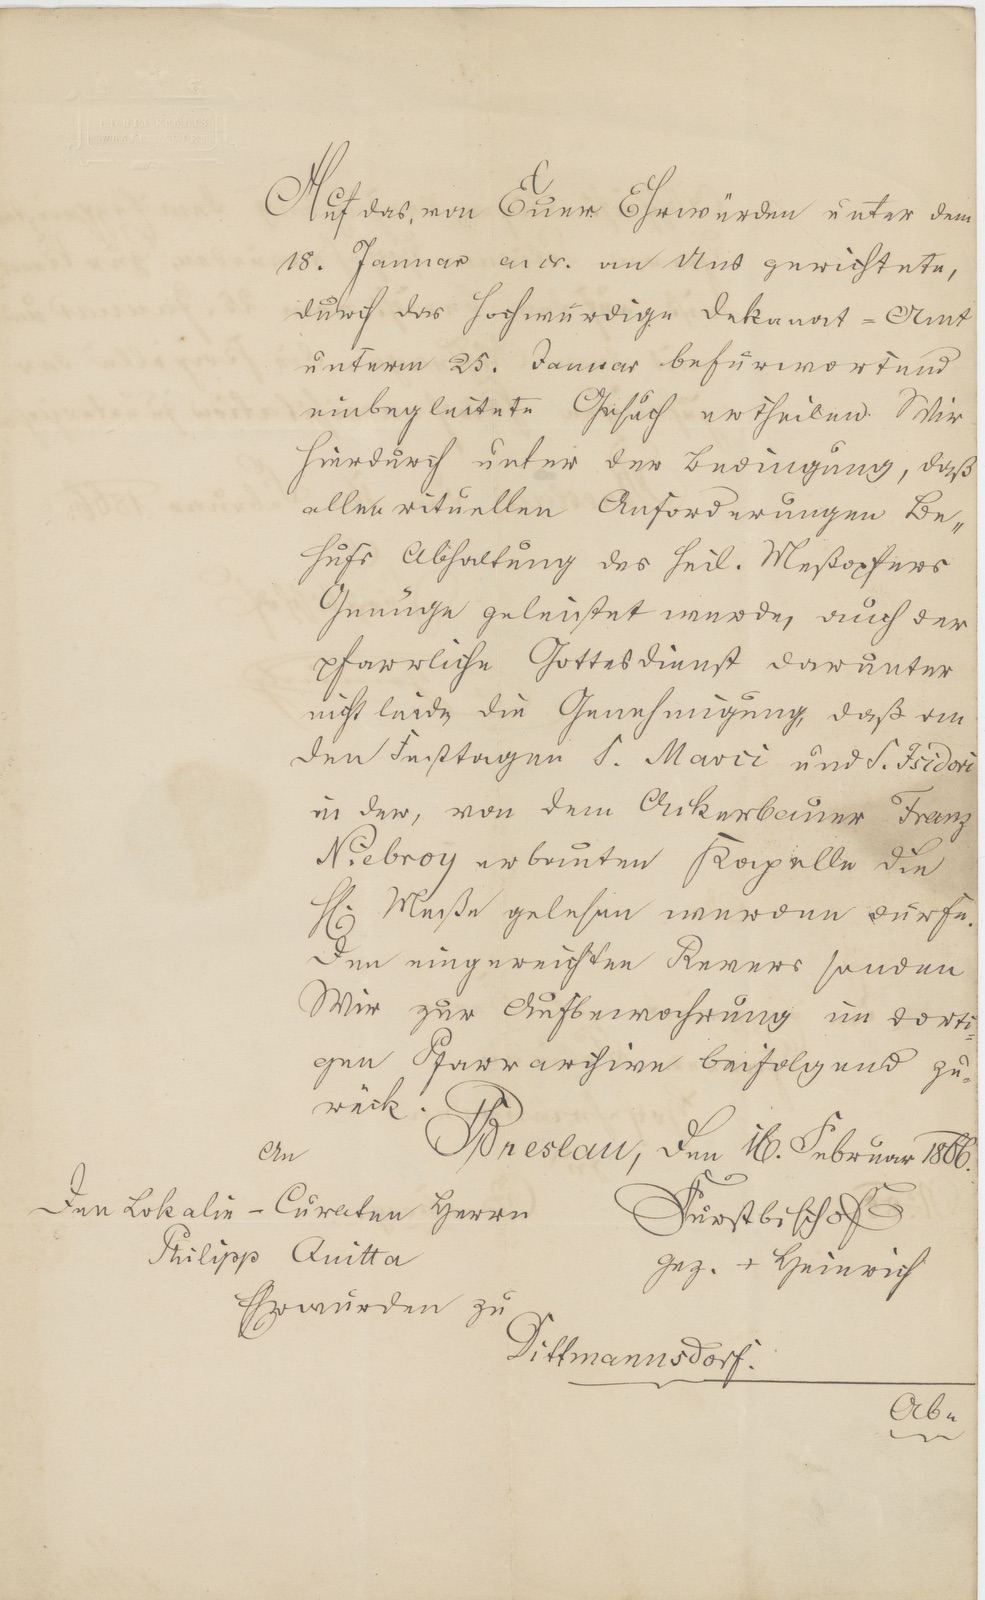 Auf das, von Euer Ehrwürden unter dem
18. Januar a. cr. an Uns gerichtete,
durch das Hochwürdige Dekanat=Amt
unterm 25. Januar befürwortend
einbegleitete Gesuch ertheilen Wir
hierdurch unter der Bedingung, daß
allen rituellen Anforderungen Be„
hufs Abhaltung des heil. Meßopfers
Genüge geleistet werde, auch der
pfarrliche Gottesdienst darunter
nicht leide, die Genehmigung, daß an
den Festtagen S. Marci und S. Isidori
in der, von dem Ackerbauer Franz
Niebroy erbauten Kapelle die
hl. Meße gelesen werden dürfe.
Den eingereichten Revers senden
Wir zur Aufbewahrung im dorti=
gen Pfarrarchive beifolgend zu=
rück.
Breslau, den 16. Februar 1866.
An
Den Lokalie-Curaten Herrn
Philipp Quitta
Ehrwürden zu
Dittmannsdorf.
Fürstbischof
gez. + Heinrich
Ab„